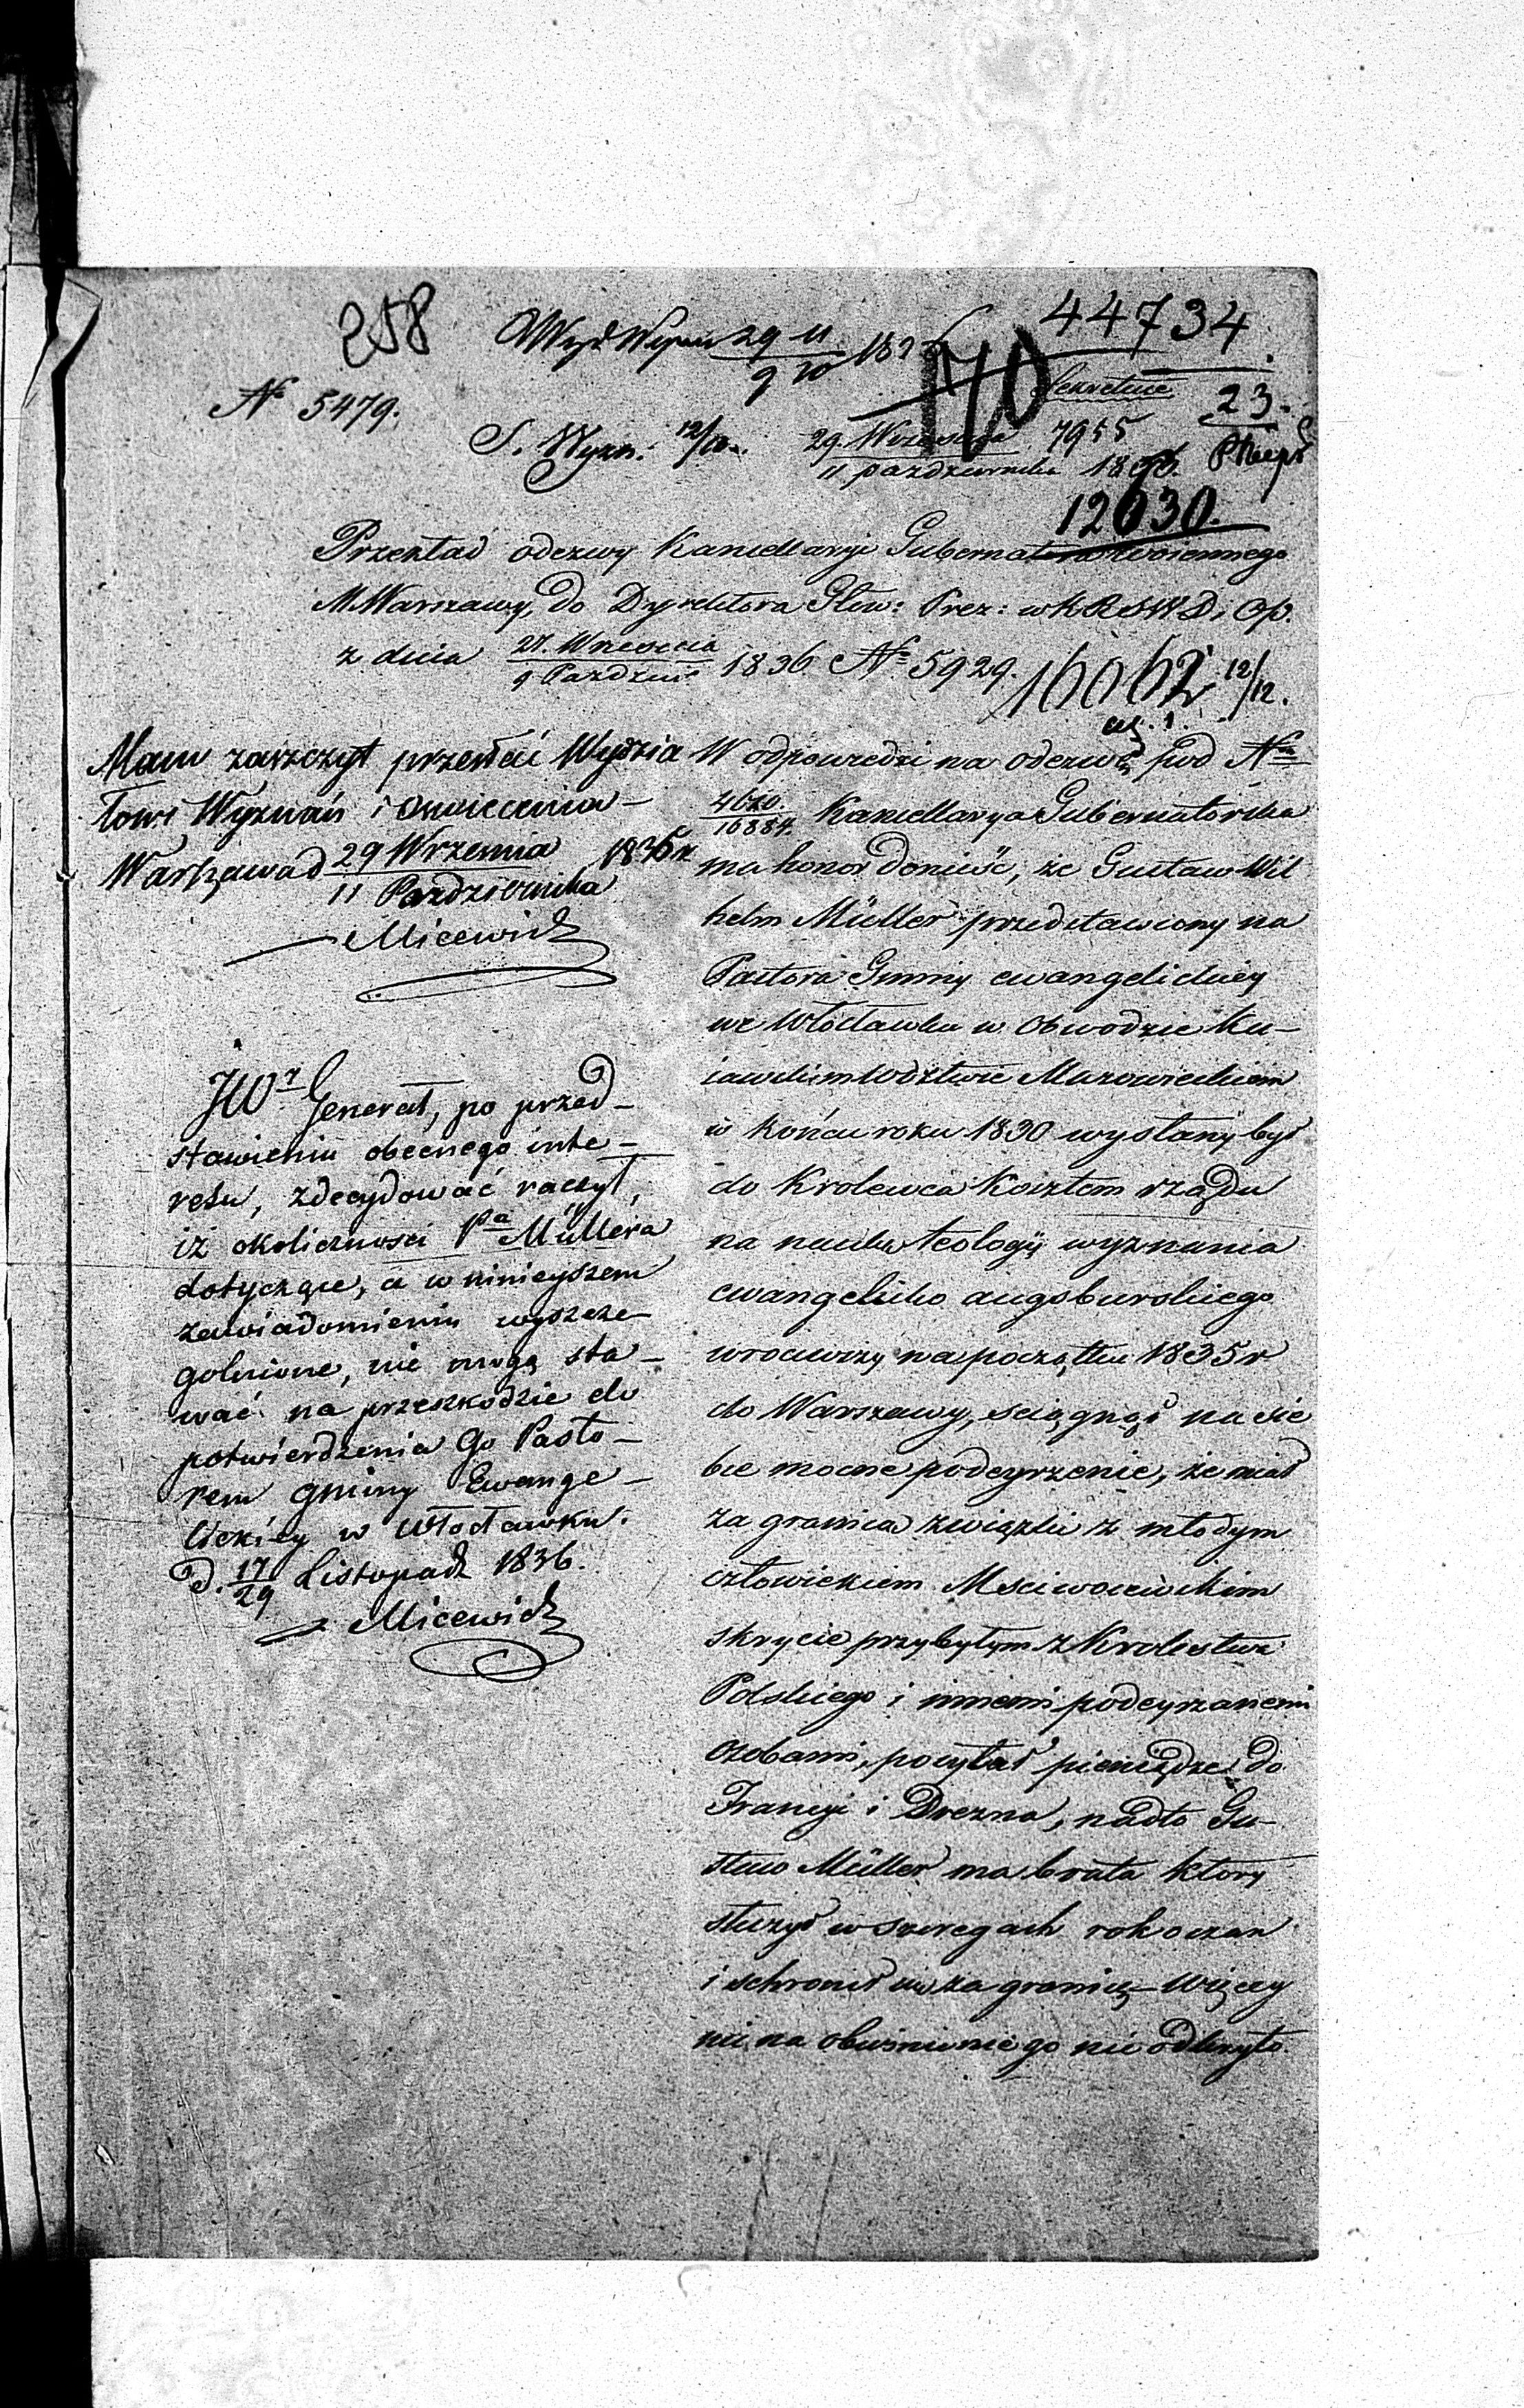 258
44734
N° 5479.
Sekretne
23.
170
S. Wyzn: 12/10
29 Września 7955
11 października 1836.
12030.
Przekład odezwy Kancellaryi Gubernatora Woiennego
M Warszawy, do Dyrektora Głow: Prez: w K R S W D. i Op.
z dnia 27. Września / 9 Paździer 1836 N° 5929.
16062 12/12.
Mam zaszczyt przesłać Wydzia
łowi Wyznań i Oświecenia –
Warszawa d 29 Września 1836 r
11 Października
Micewicz
JWy Generał, po przed–
stawieniu obecnego inte–
resu, zdecydować raczył,
iż okoliczności Pa Müllera
dotyczące, a w ninieyszem
zawiadomieniu wyszcze–
gólnione, nie mogą sta–
wać na przeszkodzie do
potwierdzenia Go Pasto–
rem gminy Ewange–
lickiey w Włocławku.
d. 17/29 Listopada 1836.
Micewicz
W odpowiedzi na odezwę pod Nem
4620. / 16884. Kancellarya Gubernatorska
ma honor donieść, że Gustaw Wil
helm Müller przedstawiony na
Pastora Gminy ewangelickiey
we Włocławku w Obwodzie Ku–
iawskim Wództwie Mazowieckiem
w końcu roku 1830 wysłany był
do Krolewca kosztem rządu
na naukę teologij wyznania
ewangelicko augsburskiego
wrociwszy na początku 1835 r
do Warszawy, sciągnął na sie
bie mocne podeyrzenie, że miał
za granicą związki z młodym
człowiekiem Msciwoiewskim
skrycie przybyłym z Krolestwa
Polskiego i innemi podeyrzanemi
osobami, posyłał pieniądze do
Francyi i Drezna, nadto Gu–
staw Müller ma brata ktory
służył w szeregach rokoszan
i schronił się za granicę – Więcey
nic na obwinionego nie odkryto.